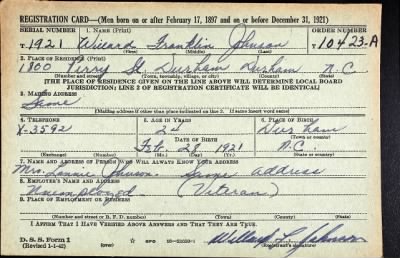 REGISTRATION CARD—(Men born on or after February 17, 1897 and on or before December 31, 1921)
SERIAL NUMBER 1. NAME (Print) ORDER NUMBER
T 1921 Willard Franklin Johnson 10423-A
(First) (Middle) (Last)
2. PLACE OF RESIDENCE (Print)
1800 Perry St Durham Durham N.C.
(Number and street) (Town, township, village, or city) (County) (State)
[THE PLACE OF RESIDENCE GIVEN ON THE LINE ABOVE WILL DETERMINE LOCAL BOARD
JURISDICTION; LINE 2 OF REGISTRATION CERTIFICATE WILL BE IDENTICAL]
3. MAILING ADDRESS
Same
[Mailing address if other than place indicated on line 2. If same insert word same]
4. TELEPHONE 5. AGE IN YEARS 6. PLACE OF BIRTH
X-3592 20 Durham
DATE OF BIRTH (Town or county)
Feb. 28 1921 N.C.
(Exchange) (Number) (Mo.) (Day) (Yr.) (State or country)
7. NAME AND ADDRESS OF PERSON WHO WILL ALWAYS KNOW YOUR ADDRESS
Mrs. Lonnie Johnson Same address
8. EMPLOYER'S NAME AND ADDRESS
Unemployed (Veteran)
9. PLACE OF EMPLOYMENT OR BUSINESS
(Number and street or R. F. D. number) (Town) (County) (State)
I AFFIRM THAT I HAVE VERIFIED ABOVE ANSWERS AND THAT THEY ARE TRUE.
D. S. S. Form 1 GPO Willard F. Johnson
(Revised 1-1-42) (over) (Registrant's signature)